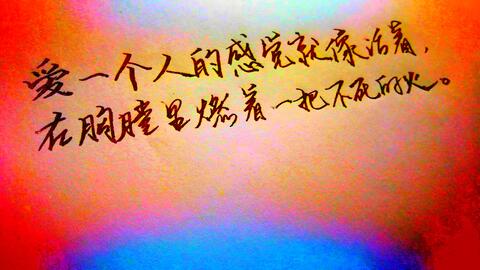 爱一个人的感觉就像活着，
在胸膛里燃着一把不死的火。